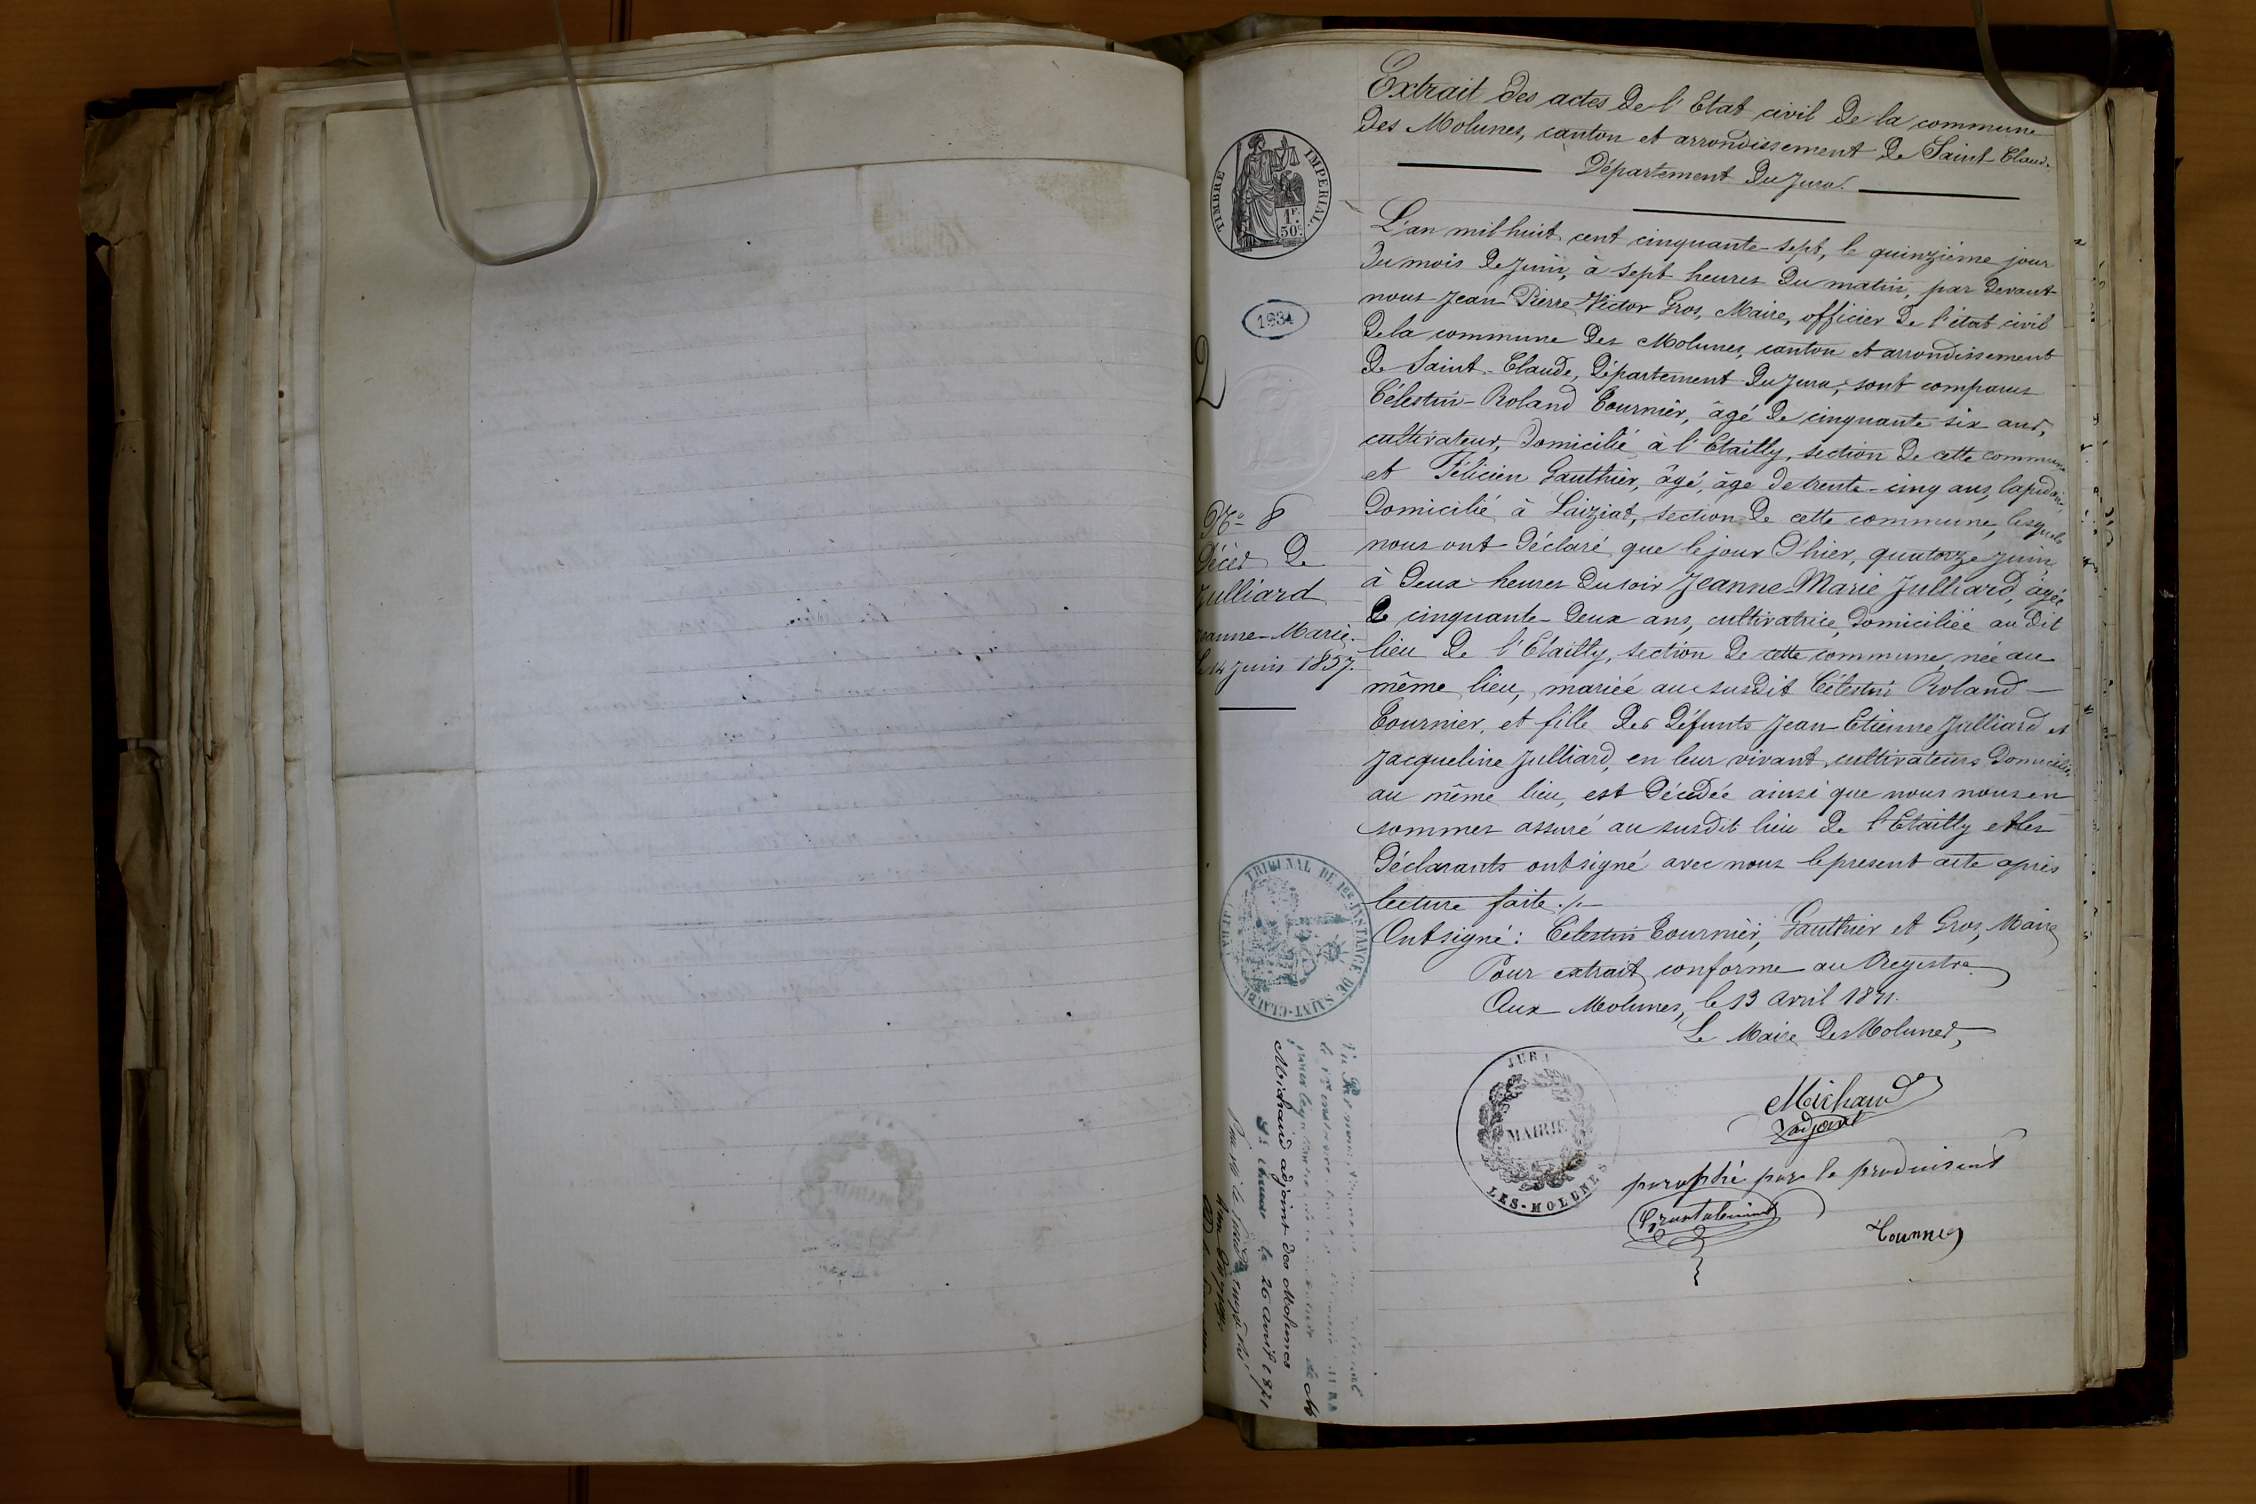 Extrait des actes de l'Etat civil de la commune
des Molunes, canton et arrondissement de Saint-Claude
Département du Jura.
TIMBRE IMPERIAL
1F. 50C.
L'an mil huit cent cinquante-sept, le quinzième jour
du mois de juin, à sept heures du matin, par devant
nous Jean Pierre Victor Gros, Maire, officier de l'état civil
1934
de la commune des Molunes, canton et arrondissement
de Saint-Claude, Département du Jura, sont comparus
Célestin-Roland Tournier, âgé de cinquante six ans,
cultivateur, domicilié à l'Etailly, section de cette commune
et Félicien Gauthier, âgé, âge de trente-cinq ans, lapidaire
domicilié à Laiziat, section de cette commune, lesquels
nous ont déclaré que le jour d'hier, quatorze juin,
à deux heures du soir Jeanne-Marie Julliard, âgée
de cinquante-deux ans, cultivatrice, domiciliée au dit
lieu de l'Etailly, section de cette commune, née au
même lieu, mariée au susdit Célestin Roland
Tournier, et fille des défunts Jean-Etienne Julliard et
Jacqueline Julliard, en leur vivant cultivateurs domiciliés
au même lieu, est décédée ainsi que nous nous en
sommes assuré au susdit lieu de l'Etailly et les
déclarants ont signé avec nous le present acte après
lecture faite ./.
Ont signé : Célestin Tournier, Gauthier et Gros, Maire
Pour extrait conforme au Registre
Aux Molunes, le 13 avril 1871.
Le Maire des Molunes,
Michaud
adjoint
paraphé par le produisant
Tournier
N° 8
Décès de
Julliard
Jeanne-Marie.
Le 14 juin 1857.
TRIBUNAL DE 1ERE INSTANCE DE SAINT-CLAUDE (JURA)
JURA
MAIRIE
LES-MOLUNES
Michaud adjoint des Molunes
St Claude le 26 avril 1871